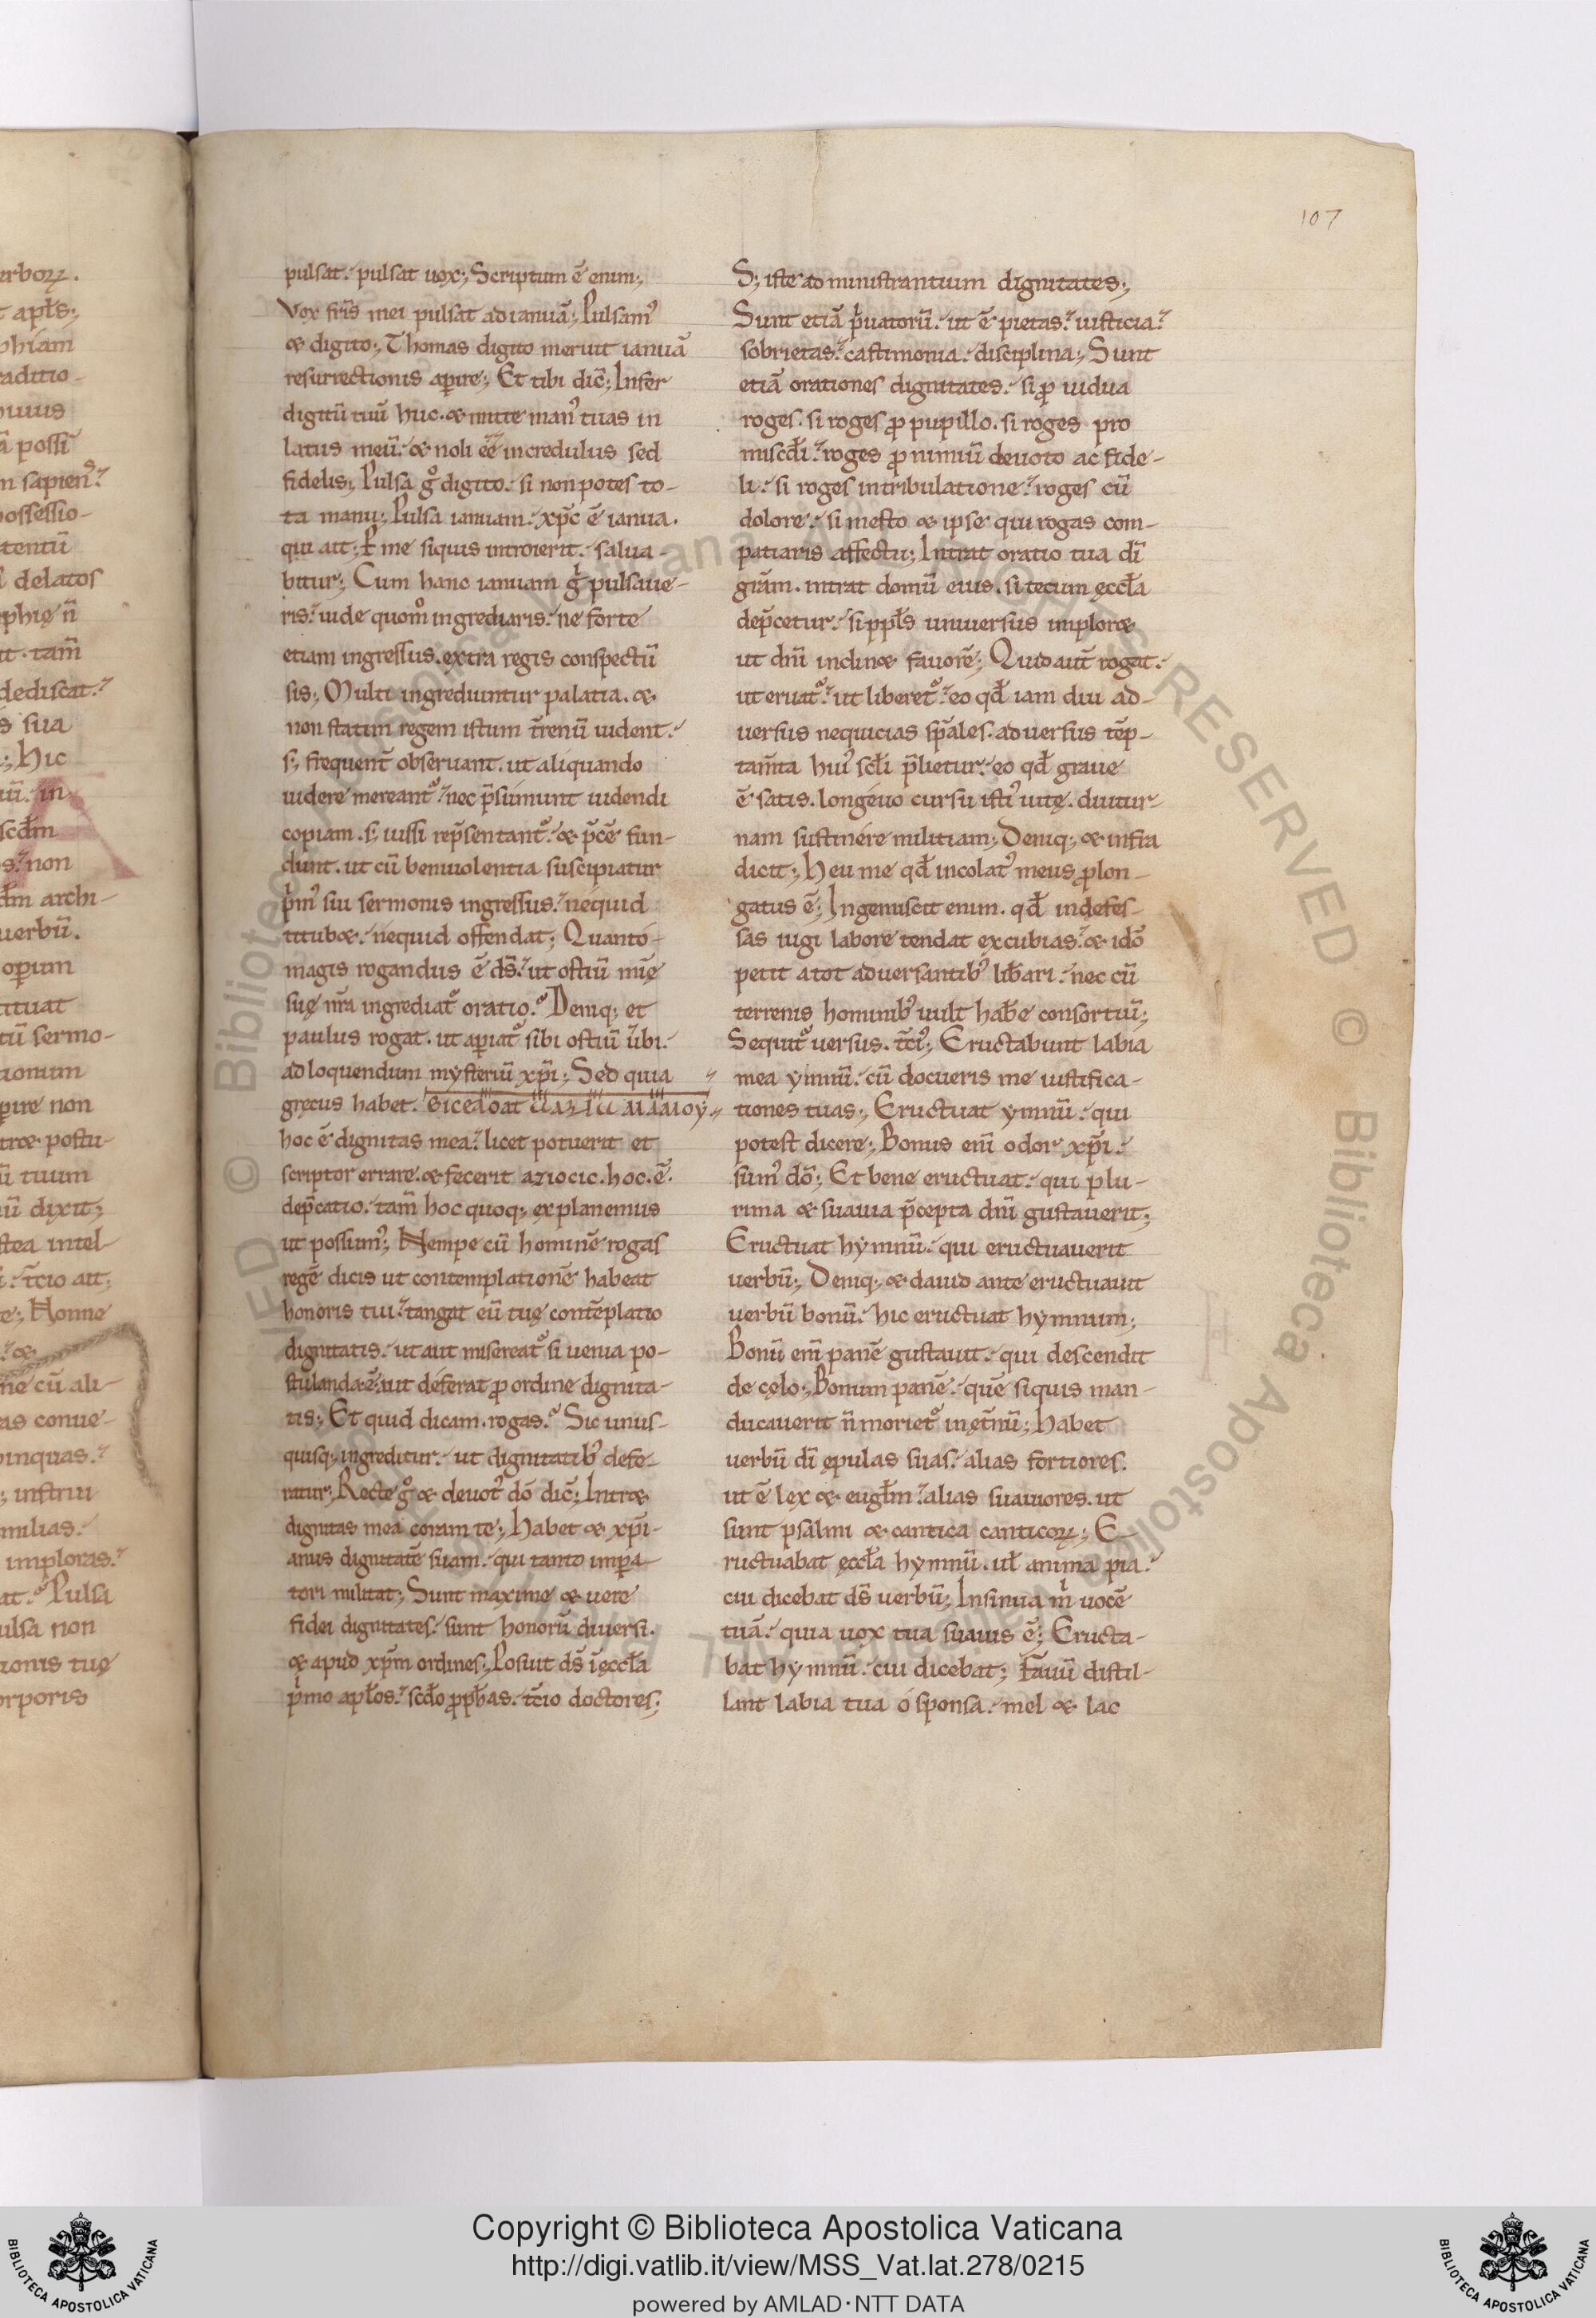 107
pulsat. pulsat uox; Scriptum ē enim;
Vox fr̄is mei pulsat ad ianuā; Pulsam᾽
& digito; Thomas digito meruit ianuā
resurrectionis aperire; Et tibi dic̄; Infer
digitū tuū huc. & mitte man᾽ tuas in
latus meū. & noli ēē incredulus sed
fidelis; Pulsa gͦ digito. si non potes to-
ta manu; Pulsa ianuam. xp̄c ē ianua.
qui ait; P me siquis introierit. salua-
bitur; Cum hanc ianuam gͥ pulsaue-
ris. uide quom̊ ingrediaris. ne forte
etiam ingressus. extra regis conspectū
sis; Multi ingrediuntur palatia. &
non statim regem istum t̄renū uident.
s; frequent̄ obseruant. ut aliquando
uidere mereant᷑. nec p̄sumunt uidendi
copiam. s; iussi rep̄sentant᷑. & p̄cē fun-
dunt. ut cū beniuolentia suscipiatur
pͥm᾽ sui sermonis ingressus. nequid
titub&. nequid offendat; Quanto
magis rogandus ē d̄s. ut ostiū mīę
suę nr̄a ingrediat᷑ oratio. Deniq; et
paulus rogat. ut aꝑiat᷑ sibi ostiū ūbi.
ad loquendum mysteriū xp̄i; Sed quia
gręcus habet.
hoc ē dignitas mea. licet potuerit et
scriptor errare. & fecerit aziocic. hoc. ē.
dep̄catio. tam̄ hoc quoq; explanemus
ut possum᾽; Nempe cū hominē rogas
regē dicis ut contemplationē habeat
honoris tui. tangat eū tuę contēplatio
dignitatis. ut aut misereat᷑ si uenia po-
stulanda ē. aut deferat ꝓ ordine dignita-
tis; Et quid dicam. rogas. Sic unus-
quisq; ingreditur. ut dignitatib᾽ defe-
ratur; Recte gͦ & deuot᾽ dō dic̄; Intr&
dignitas mea coram te; Habet & xp̄i-
anus dignitatē suam. qui tanto impa-
tori militat; Sunt maxime & uere
fidei dignitates. sunt honorū diuersi.
& apud xp̄m ordines; Posuit d̄s ī ęccl̄a
pͥmo apl̄os. scd̄o ꝓph̄as. t̄cio doctores;
S; iste administrantium dignitates;
Sunt etiā pͥuatorū. ut ē pietas. iusticia.
sobrietas. castimonia. disciplina; Sunt
etiā orationes dignitates. si ꝓ uidua
roges. si roges ꝓ pupillo. si roges pro
miscd̄i. roges ꝓ nimiū deuoto ac fide-
li. si roges in tribulatione. roges cū
dolore. si mesto & ipse qui rogas com-
patiaris affectu; Intrat oratio tua dī
grām. intrat domū eius. si tecum ęccl̄a
dep̄cetur. si ppl̄s uniuersus implor&
ut dn̄i inclin& fauorē; Quid aut̄ rogat.
ut eruat᷑. ut liberet᷑. eo qd̄ iam diu ad-
uersus nequicias sp̄ales. aduersus tēp-
tam̄ta hui᾽ scl̄i p̄lietur. eo qd̄ graue
ē satis. longeuo cursu isti᾽ uitę. diutur-
nam sustinere militiam; Deniq; & infra
dicit; Heu me qd̄ incolat᾽ meus ꝓlon-
gatus ē; Ingemiscit enim. qd̄ indefes-
sas iugi labore tendat excubias. & idō
petit a tot aduersantib᾽ lib̄ari. nec cū
terrenis hominib᾽ uult hab̄e consortiū;
Sequit᷑ uersus. t̄ci᾽; Eructabunt labia
mea ymnū. cū docueris me iustifica-
tiones tuas; Eructuat ymnū. qui
potest dicere; Bonus eni̅ odor xp̄i.
sum᾽ dō; Et bene eructuat. qui plu-
rima & suauia p̄cepta dn̄i gustauerit;
Eructuat hymnū. qui eructuauerit
uerbū; Deniq; & dauid ante eructuauit
uerbū bonū. hic eructuat hymnum;
Bonū eni̅ panē gustauit. qui descendit
de cęlo; Bonum panē. quē siquis man-
ducauerit n̄ moriet᷑ in ęt̄nū; Habet
uerbū dī ępulas suas. alias fortiores.
ut ē lex & eugl̄m. alias suauiores. ut
sunt psalmi & cantica canticoꝝ; E-
ructuabat ęccl̄a hymnū. ul̄ anima pia.
cui dicebat d̄s uerbū; Insinua mͥ uocē
tuā. quia uox tua suauis ē; Eructa-
bat hymnū. cui dicebat; Fauū distil-
lant labia tua o sponsa. mel & lac
Copyright © Biblioteca Apostolica Vaticana
http://digi.vatlib.it/view/MSS_Vat.lat.278/0215
powered by AMLAD·NTT DATA
BIBLIOTECA APOSTOLICA VATICANA
BIBLIOTECA APOSTOLICA VATICANA